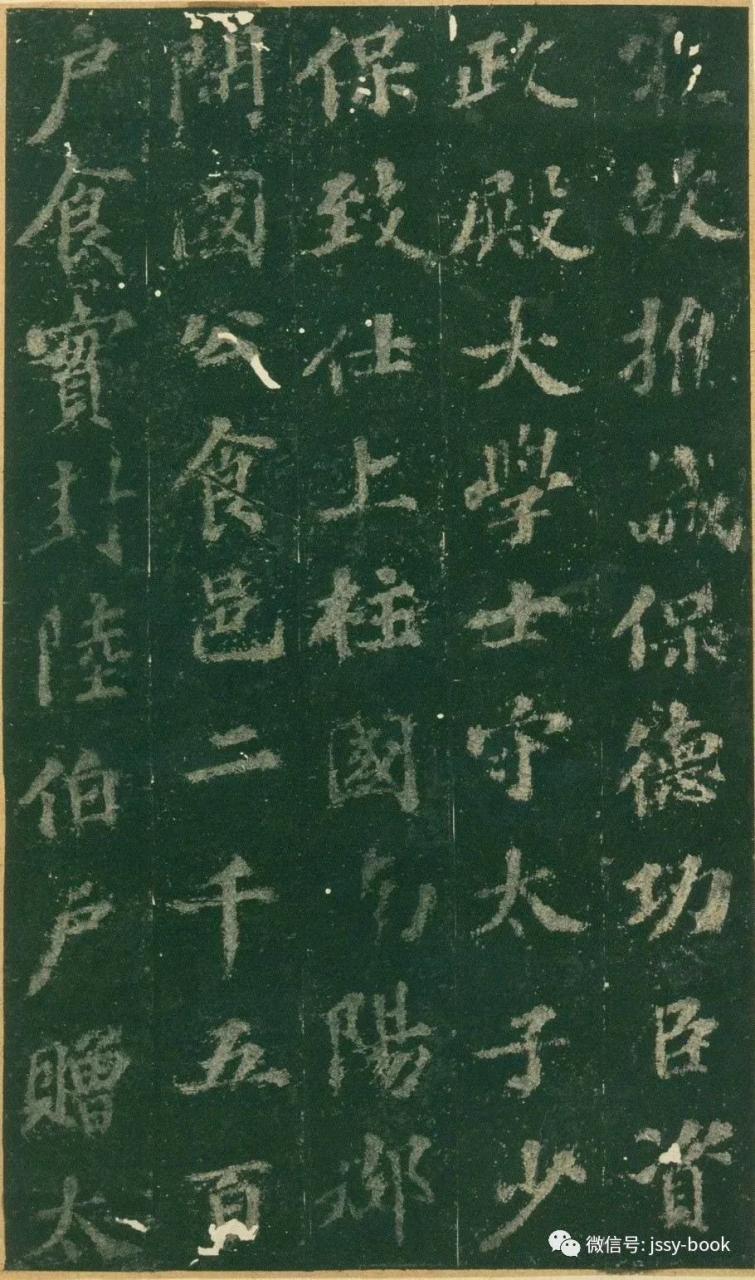 故推誠保德功臣資
政殿大學士守太子少
保致仕上柱國陽郡
開國公食邑二千五百
户食實封陸伯户贈太
微信号: jssy-book